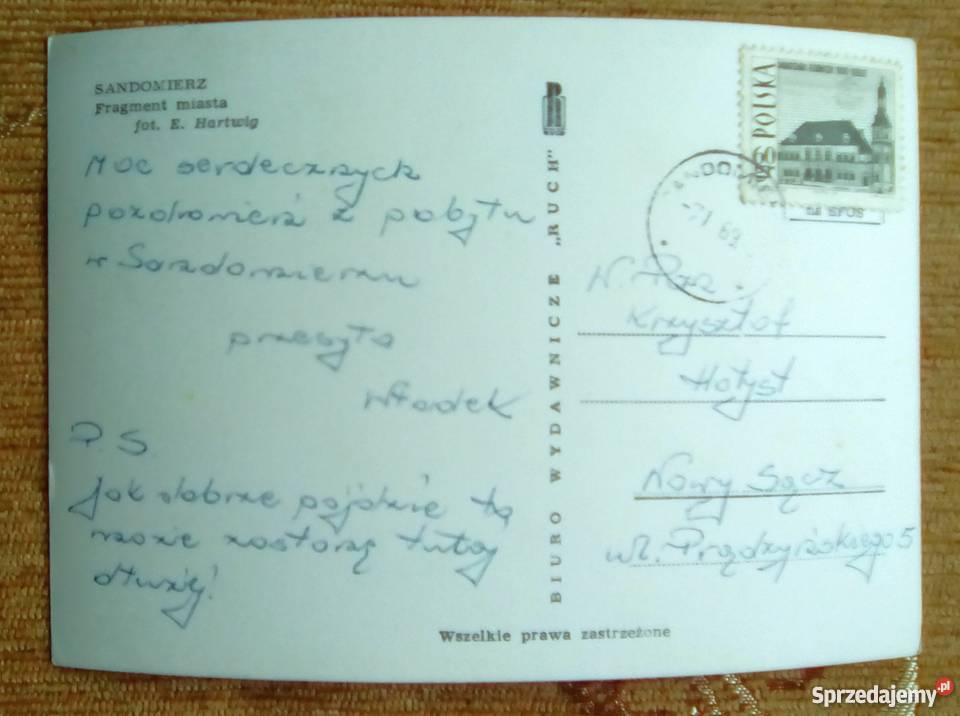 SANDOMIERZ
Fragment miasta
fot. E. Hartwig
Moc serdecznych
pozdrowień z pobytu
w Sandomierzu
przesyła
Włodek
P.S
Jak dobrze pójdzie to
może zostanę tutaj
dłużej!
BIURO WYDAWNICZE „RUCH"
POLSKA
60
SANDO
-7.1 69
W. Pan
Krzysztof
Hołyst
Nowy Sącz
ul. Prądzyńskiego 5
Wszelkie prawa zastrzeżone
Sprzedajemy.pl